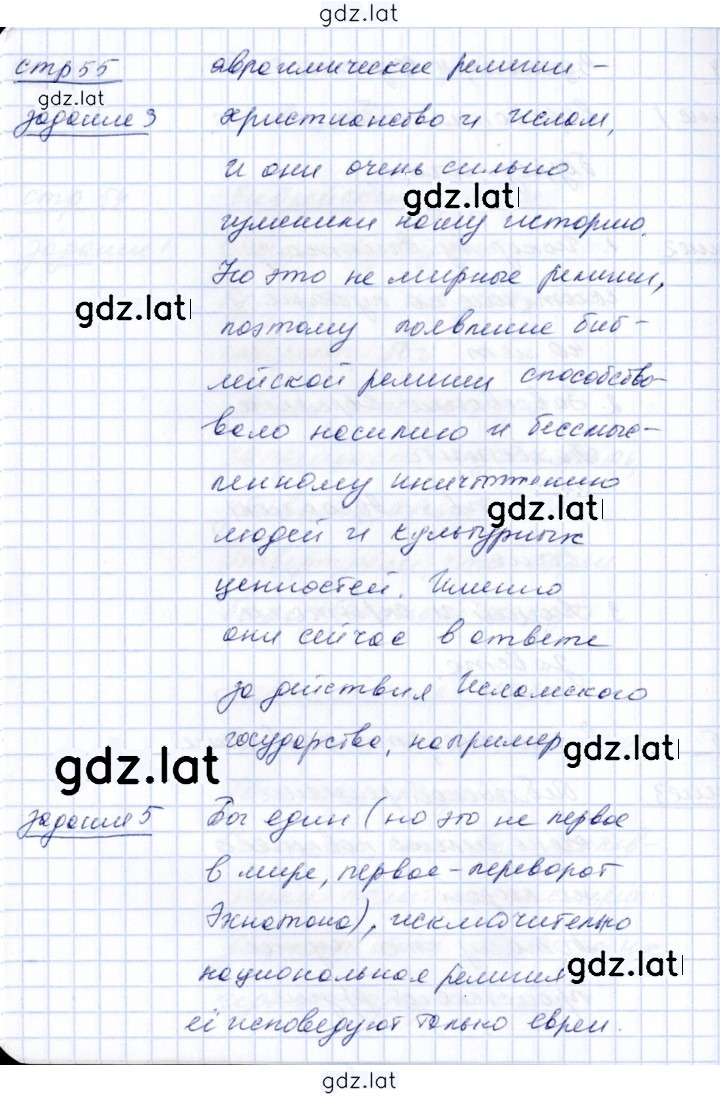 gdz.lat
стр 55 авраамические религии –
gdz.lat
задание 3 христианство и Ислам,
и они очень сильно
gdz.lat
нашу историю.
Но это не мирные религии,
gdz.lat
поэтому появление биб-
лейской религии способство-
вало насилию и бессмыс-
ленному уничтожению
gdz.lat
людей и культурных
ценностей. Именно
они сейчас в ответе
за действия Исламского
государства, например
gdz.lat
gdz.lat
задание 5 Бог един (но это не первое
в мире, первое – переворот
Эхнатона), исключительно
национальная религия
gdz.lat
её исповедуют только евреи.
gdz.lat